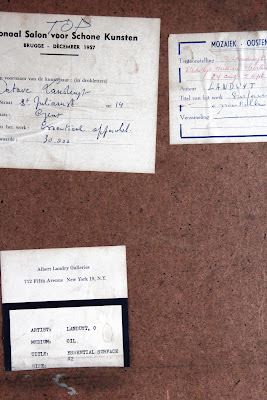 TOP
onaal Salon voor Schone Kunsten
BRUGGE - DECEMBER 1957
(in drukletters)
Octave Landuyt
straat St Juliaanst nr 14
Gent
Essentieel oppervlak
30.000
MOZAIEK - OOSTEN
Tentoonstelling
Auteur LANDUYT
Titel van het werk
Verzameling
Albert Landry Galleries
712 Fifth Avenue New York 19, N.Y.
ARTIST: LANDUYT, O
MEDIUM: OIL
TITLE: ESSENTIAL SURFACE
#2
SIZE: